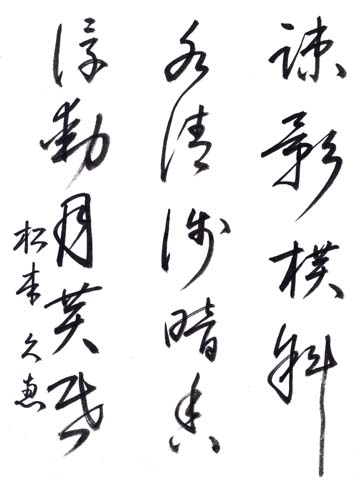 疎影横斜
水清浅暗香
浮動月黄昏
松本久恵